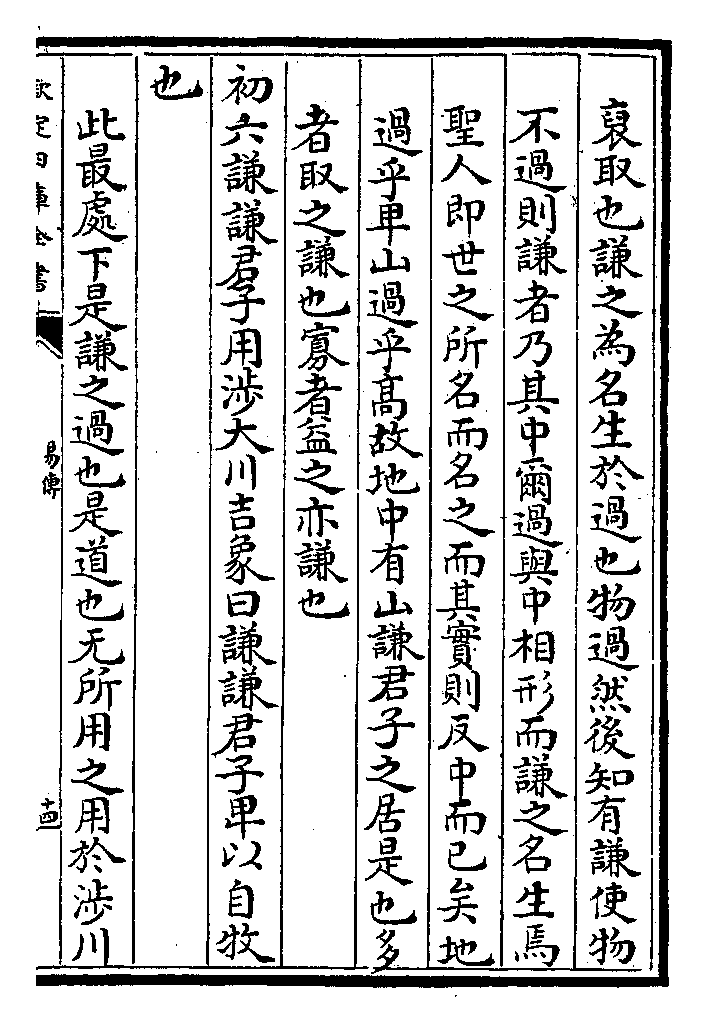 裒取也謙之為名生於過也物過然後知有謙使物
不過則謙者乃其中爾過與中相形而謙之名生焉
聖人即世之所名而名之而其實則反中而已矣地
過乎卑山過乎高故地中有山謙君子之居是也多
者取之謙也寡者益之亦謙也
初六謙謙君子用涉大川吉象曰謙謙君子卑以自牧
也
此最處下是謙之過也是道也无所用之用於涉川
欽定四庫全書
易傳
十四